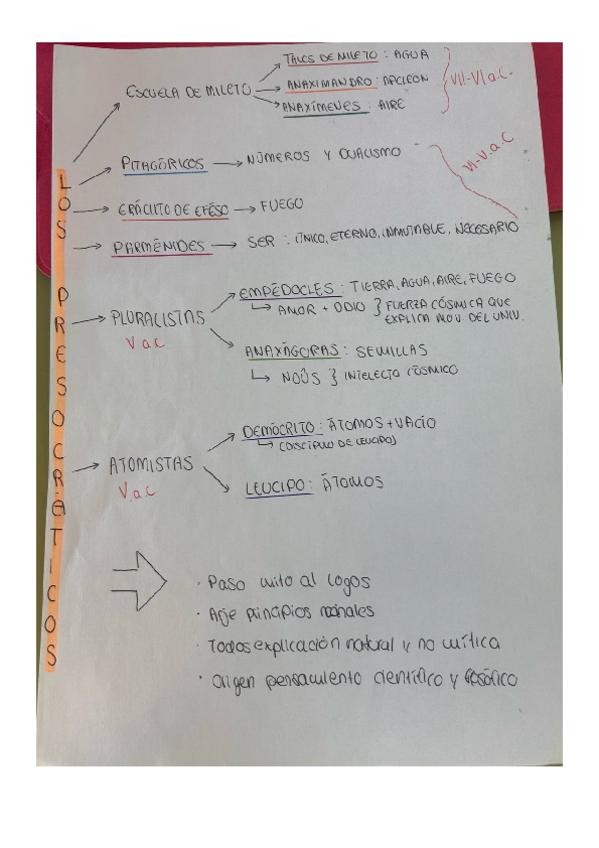 LOS PRESOCRÁTICOS
ESCUELA DE MILETO
TALES DE MILETO : AGUA
ANAXIMANDRO : APEIRON
ANAXÍMENES : AIRE
VII-VI a.C.
PITAGÓRICOS → NÚMEROS Y DUALISMO
VI-V a.C
ERÁCLITO DE EFÉSO → FUEGO
PARMÉNIDES → SER : ÚNICO, ETERNO, INMUTABLE, NECESARIO
PLURALISTAS
V a C
EMPÉDOCLES : TIERRA, AGUA, AIRE, FUEGO
AMOR + ODIO } FUERZA CÓSMICA QUE
EXPLICA MOV DEL UNIV.
ANAXÁGORAS : SEMILLAS
NOÛS } INTELECTO CÓSMICO
ATOMISTAS
V. a C
DEMÓCRITO : ÁTOMOS + VACÍO
(DISCÍPULO DE LEUCIPO)
LEUCIPO : ÁTOMOS
· Paso mito al logos
· Arje principios
· Todos explicación natural y no mítica
· Origen pensamiento científico y filosófico